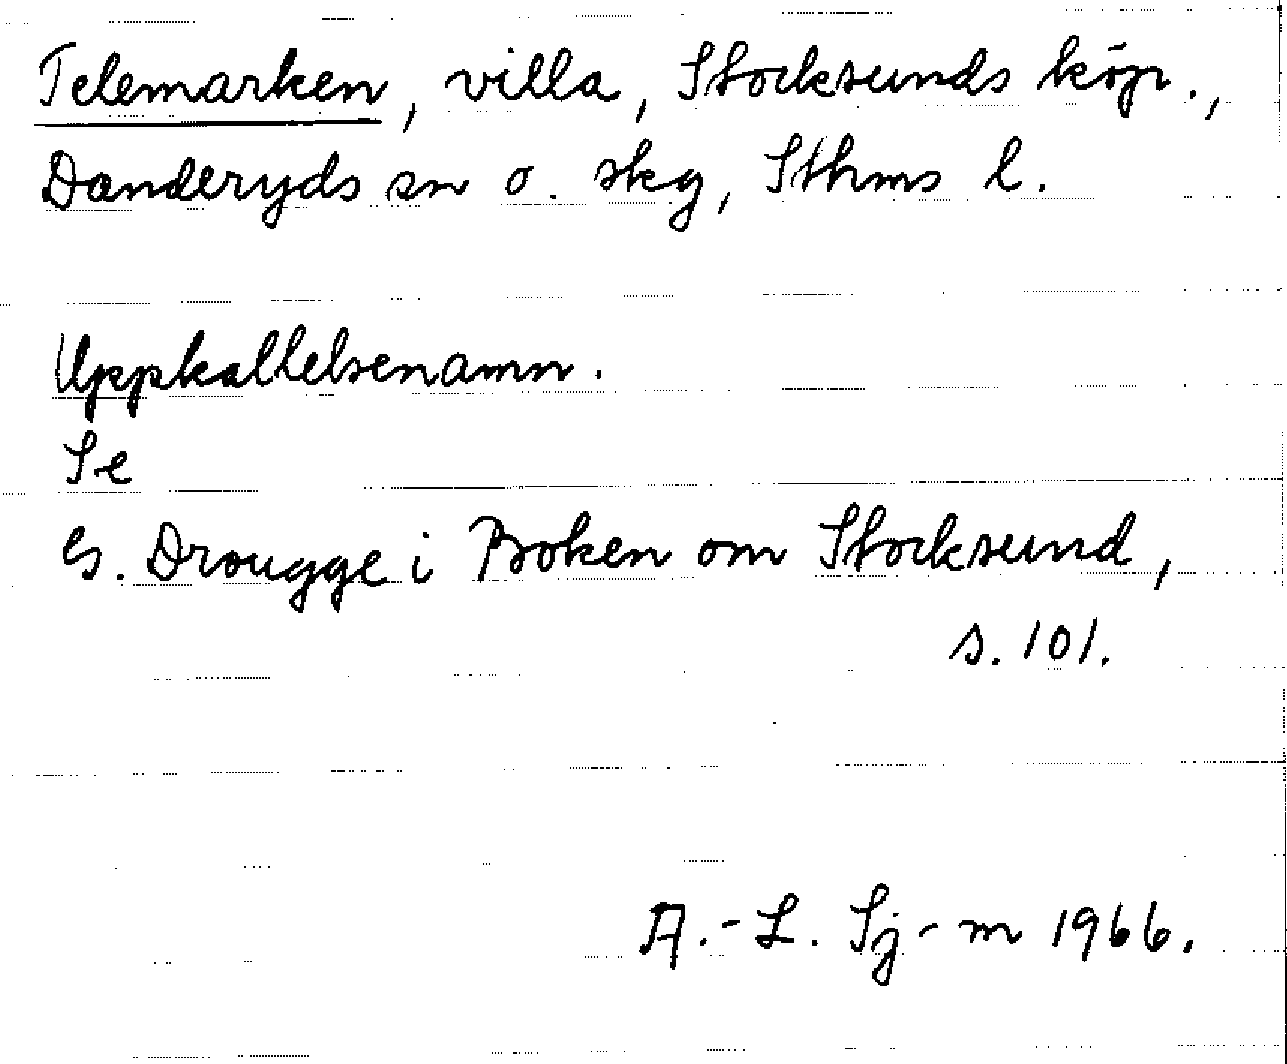 Telemarken, villa, Stocksunds köp.,
Danderyds sn o. skg, Sthms l.
Uppkallelsenamn.
Se
G. Drougge i Boken om Stocksund,
s. 101.
A.-L. Sj-m 1966.